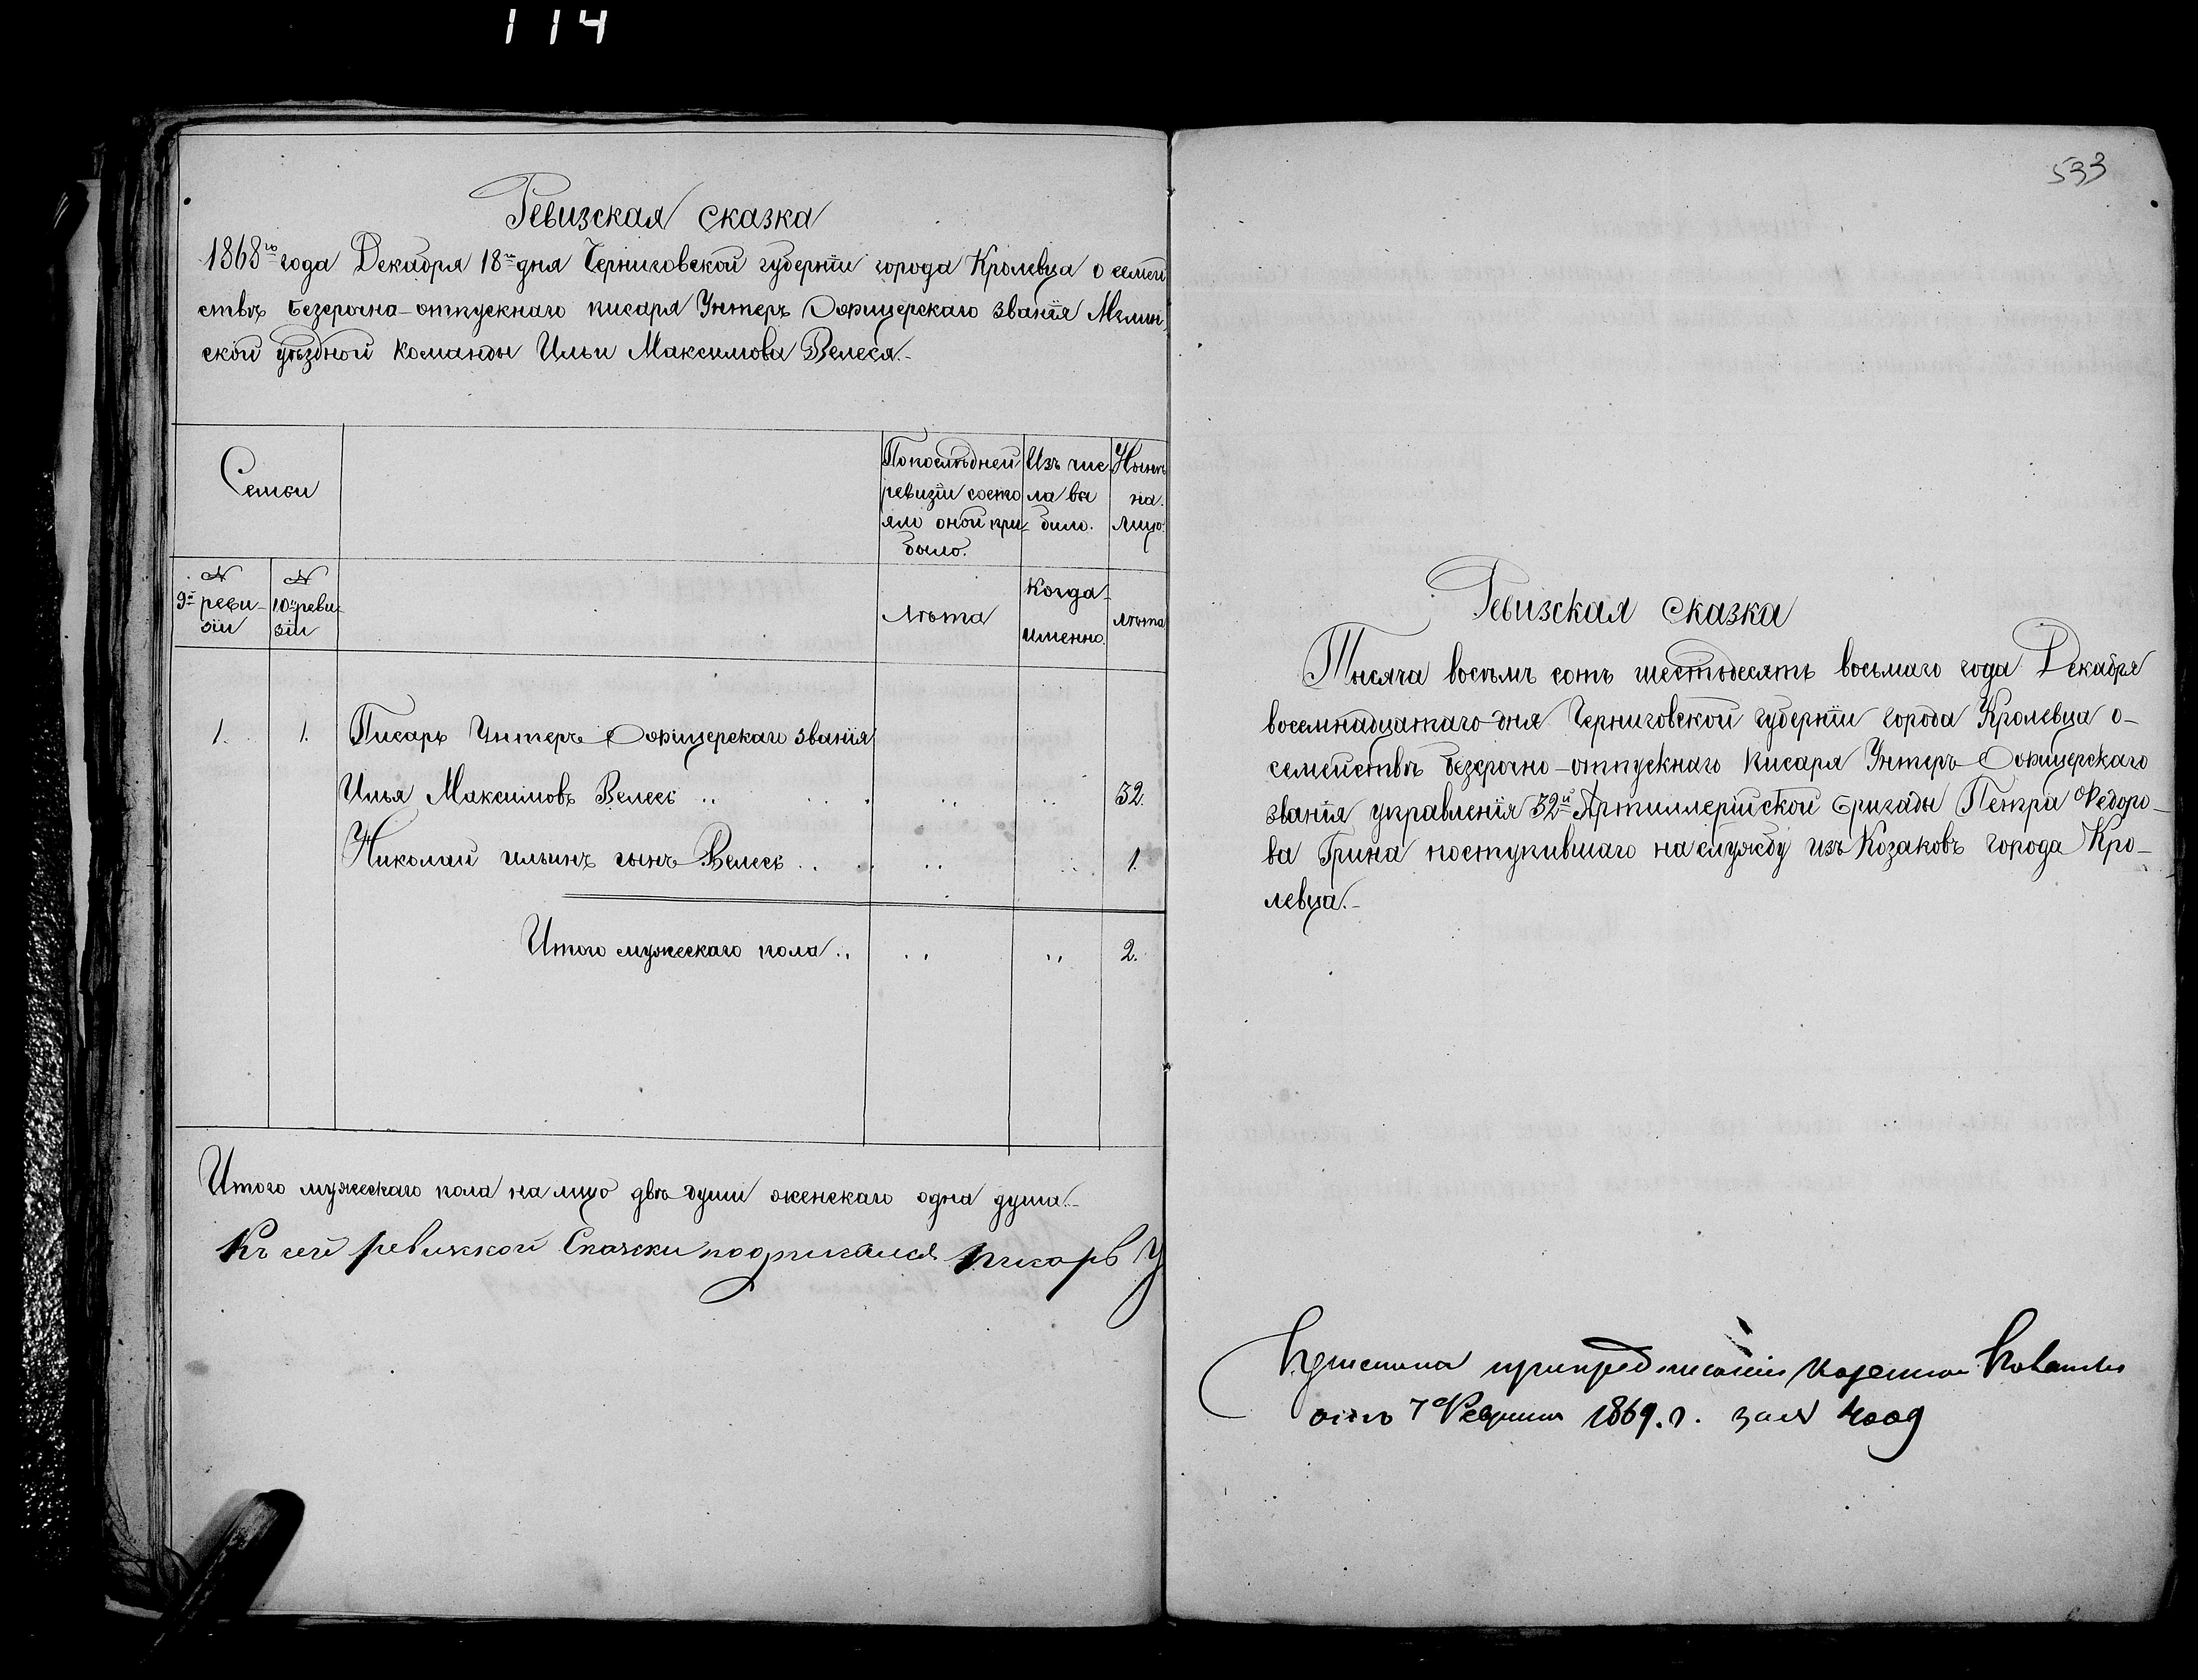 114
Ревизская сказка
1868го года Декабря 18го дня Черниговской губернiи города Кролевца о семей
ствѣ безсрочна-отпускнаго писаря Унтеръ Офицерскаго званiя Мглин-
ской уѣздной команды Ильи Максимова Велеся.-
Семьи
По послѣдней
ревизiи состо
яло оной при-
было.
Изъ чис
ла вы
было.
Нынѣ
на
лицо.
№
9й реви-
зiи
№
10й реви-
зiи
Лѣта
Когда
именно.
лѣта
1. 1. Писарь Унтеръ Офицерскаго званiя
Илья Максимовъ Велесь 32.
Николай ильинъ сынъ Велесь 1.
Итого мужескаго пола 2.
Итого мужескаго пола на лицо двѣ души женскаго одна душа.-
Къ сей ревизской Сказки подписался писарь У
533
Ревизская сказка
Тысяча восѣмъ сотъ шестьдесятъ восьмаго года Декабря
восемнадцатаго дня Черниговской губернiи города Кролевца о-
семействѣ безсрочно-отпускнаго писаря Унтеръ Офицерскаго
званiя управленiя 32й Артиллерiйской бригады Петра Федоро-
ва Грина поступившаго на службу изъ Козаковъ города Кро-
левца.-
при предписанiи Казенной
отъ 7 1869.г. за № 4009